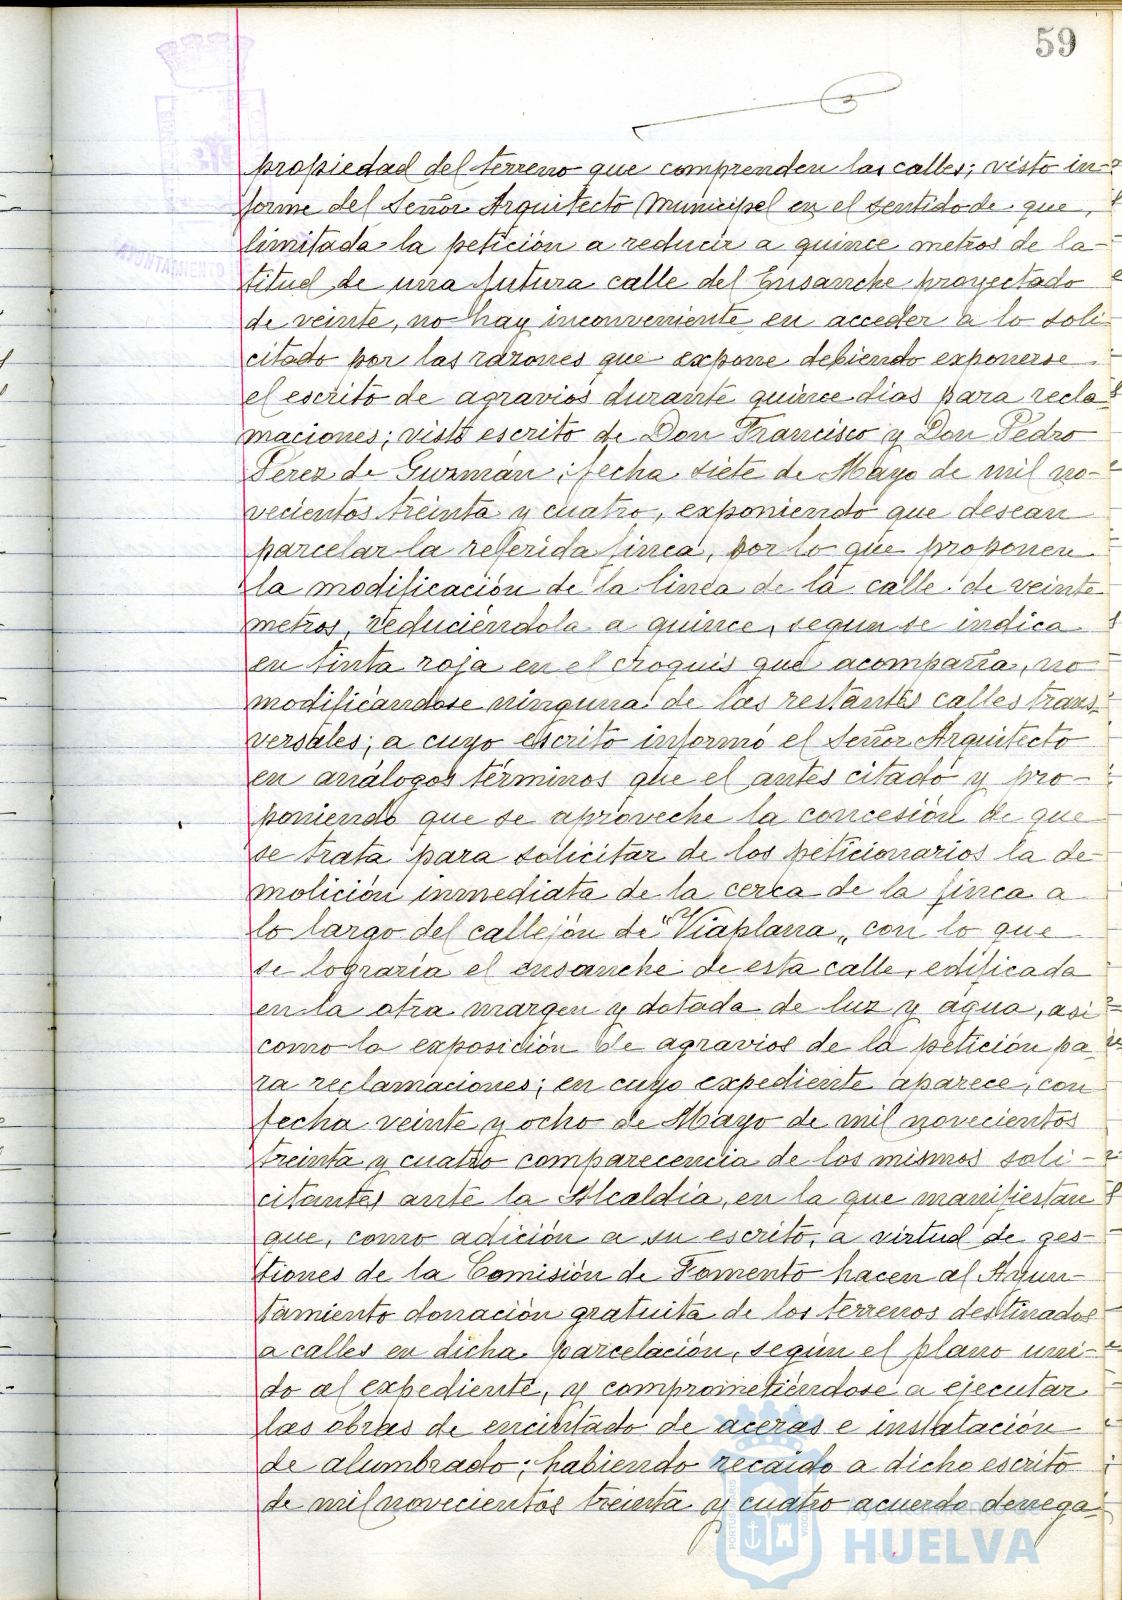 59
propiedad del terreno que comprenden las calles; visto in-
forme del Señor Arquitecto Municipel en el sentido de que,
limitada la petición a reducir a quince metros de la-
titud de una futura calle del Ensanche proyectado
de veinte, no hay inconveniente en acceder a lo soli-
citado por las razones que expone debiendo exponerse
el escrito de agravios durante quince dias para recla-
maciones; visto escrito de Don Francisco y Don Pedro
Perez de Guzmán, fecha siete de Mayo de mil no-
vecientos treinta y cuatro, exponiendo que desean
parcelar la referida finca, por lo que proponen
la modificación de la linea de la calle de veinte
metros, reduciéndola a quince, segun se indica
en tinta roja en el croquis que acompaña, no
modificándose ninguna de las restantes calles trans-
versales; a cuyo escrito informó el Señor Arquitecto
en análogos términos que el antes citado y pro-
poniendo que se aproveche la concesión de que
se trata para solicitar de los peticionarios la de-
molición inmediata de la cerca de la finca a
lo largo del callejón de "Viaplana" con lo que
se lograría el ensanche de esta calle, edificada
en la otra margen y dotada de luz y agua, asi
como la exposición de agravios de la petición pa-
ra reclamaciones; en cuyo expediente aparece, con
fecha veinte y ocho de Mayo de mil novecientos
treinta y cuatro comparecencia de los mismos soli-
citantes ante la Alcaldía, en la que manifiestan
que, como adición a su escrito, a virtud de ges-
tiones de la Comisión de Fomento hacen al Ayun-
tamiento donación gratuita de los terrenos destinados
a calles en dicha parcelación, según el plano uni-
do al expediente, y comprometiéndose a ejecutar
las obras de encintado de aceras e instalación
de alumbrado; habiendo recaido a dicho escrito
de mil novecientos treinta y cuatro acuerdo denega-
Ayuntamiento de
HUELVA